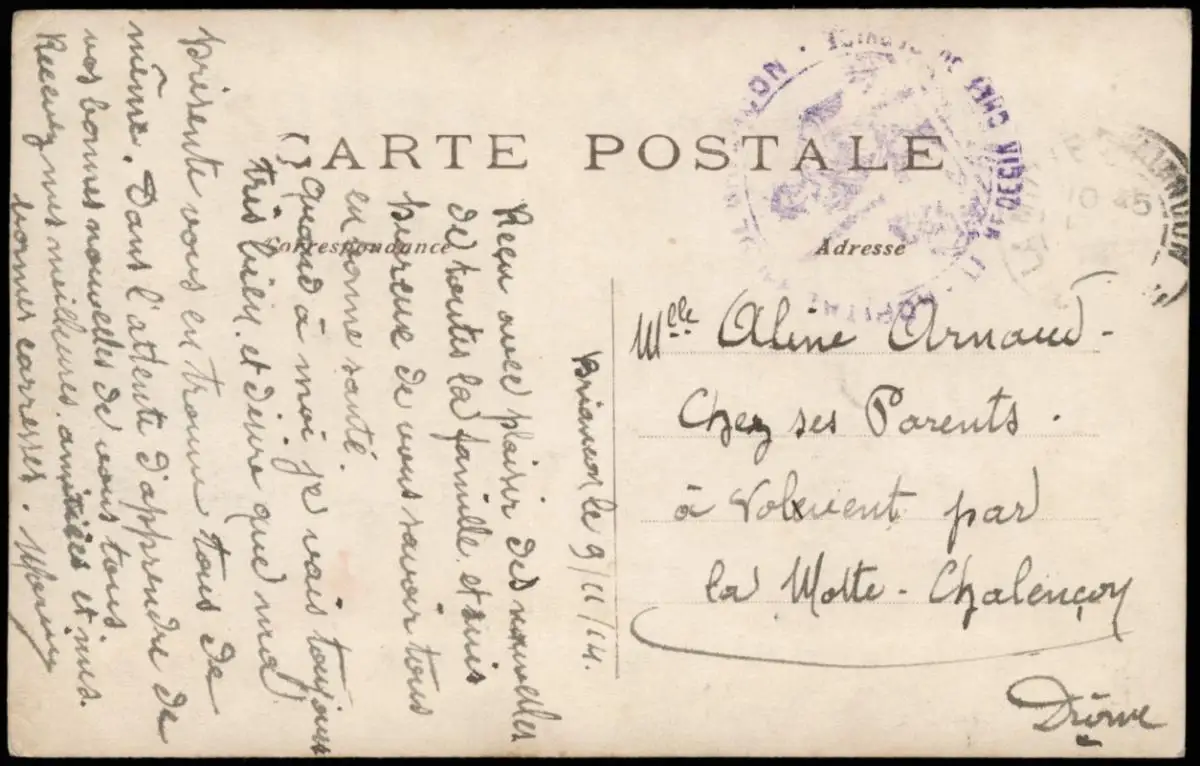 CARTE POSTALE
Correspondance
Adresse
Briancon le 9/11/14.
Reçu avec plaisir des nouvelles
de toutes la famille et suis
heureux de vous savoir tous
en bonne santé.
Quand à moi je vais toujours
très bien et désire que ma
présente vous en trouve tous de
même. Dans l'attente d'apprendre de
vos bonnes nouvelles de vous tous
Recevez mes meilleures amitiées et mes
bonnes caresses.
Mlle Aline Arnaud -
Chez ses Parents.
à Volvent par
la Motte-Chalençon
Drôme
LE MEDECIN CHEF
10 45